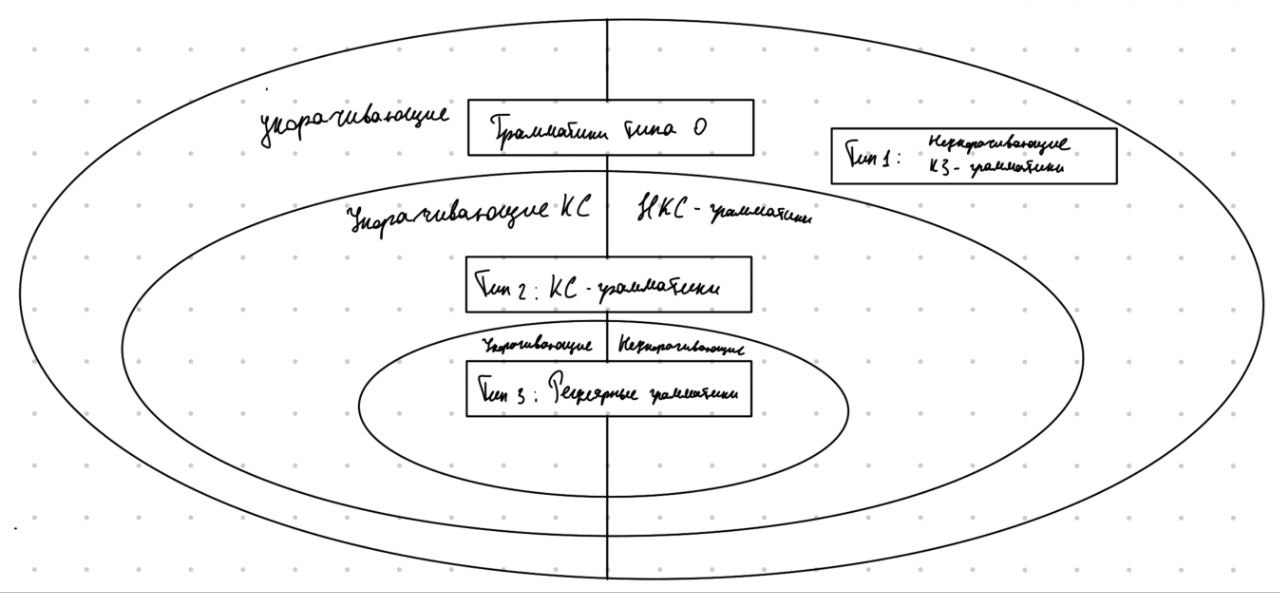 укорачивающие
Грамматики типа 0
Тип 1: Неукорачивающие
КЗ - грамматики
Укорачивающие КС
НКС - грамматики
Тип 2: КС - грамматики
Укорачивающие
Неукорачивающие
Тип 3: Регулярные грамматики